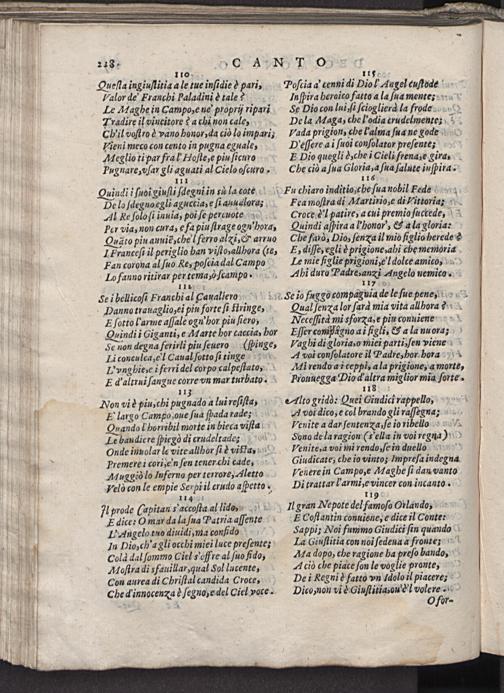 228. CANTO
110
Questa ingiustitia a le tue insidie è pari,
Valor de' Franchi Paladini è tale?
Le Maghe in Campo, e ne' proprij ripari
Tradire il vincitore? a chi non cale,
Ch'il vostro è vano honor, da ciò lo impari;
Vieni meco con cento in pugna eguale,
Meglio ti par fra l'Hoste, e piu sicuro
Pugnare, vsar gli aguati al Cielo oscuro.
111
Quindi i suoi giusti sdegni in sù la cote
De lo sdegno egli aguccia, e si auualora;
Al Re solo si inuia, poi se percuote
Per via, non cura, e fa piu strage ogn'hora,
Quāto piu auuiē, che'l ferro alzi, & arruo
I Francesi il periglio han visto, allhora (te,
Fan corona al suo Re, poscia dal Campo
Lo fanno ritirar per tema, ò scampo.
112
Se i bellicosi Franchi al Caualiero
Danno trauaglio, ei piu forte si stringe,
E sotto l'arme assale ogn'hor piu fiero,
Quindi i Giganti, e Marte hor caccia, hor
Se non degna ferirli piu seuero (spinge,
Li conculca, e'l Caual sotto si tinge
L'vnghie, e i ferri del corpo calpestato,
E d'altrui sangue corre vn mar turbato.
113
Non vi è piu, chi pugnado a lui resista,
E' largo Campo, oue sua spada rade;
Quando l'horribil morte in bieca vista
Le bandiere spiegò di crudeltade;
Onde insolar le vite allhor si è vista,
Premere i cori, e'n sen tener chi cade,
Muggiò lo Inferno per terrore, Aletto
Velò con le empie Serpi il crudo aspetto.
114
Il prode Capitan s'accosta al lido,
E dice: O mar da la sua Patria assente
L'Angelo tuo diuidi, ma confido
In Dio, ch'a gli occhi miei luce presente;
Colà dal sommo Ciel s'offre al suo fido,
Mostra di sfauillar, qual Sol lucente,
Con aurea di Christal candida Croce,
Che d'innocenza è segno, e del Ciel voce.
115
Poscia a' cenni di Dio l'Angel custode
Inspira heroico fatto a la sua mente;
Se Dio con lui, si scioglierà la frode
De la Maga, che l'odia crudelmente;
Vada prigion, che l'alma sua ne gode
D'essere a i suoi consolator presente;
E Dio quegli è, che i Cieli frena, e gira,
Che ciò a sua Gloria, a sua salute inspira.
116
Fu chiaro inditio, che sua nobil Fede
Fea mostra di Martirio, e di Vittoria;
Croce è'l patire, a cui premio succede,
Quindi aspira a l'honor', & a la gloria:
Che farò, Dio, senza il mio figlio herede è
E, disse, egli è prigione, ahi che memoria
Le mie figlie prigioni, e'l dolce amico,
Ahi duro Padre, anzi Angelo nemico.
117
Se io fuggo compagnia de le sue pene,
Qual senza lor sarà mia vita allhora?
Necessità mi sforza, e piu conuiene
Esser compagno ai figli, & a la nuora;
Vaghi di gloria, o miei parti, sen viene
A voi consolatore il Padre, hor hora
Mi rendo a i ceppi, a la prigione, a morte,
Prouegga Dio d'altra miglior mia sorte.
118
Alto gridò: Quei Giudici rappello,
A voi dico, e col brando gli rassegna;
Venite a dar sentenza, se io ribello
Sono de la ragion (s'ella in voi regna)
Venite, a voi mi rendo, se in duello
Giudicate, che io vinto; Impresa indegna
Venere in Campo, e Maghe si dan vanto
Di trattar l'armi, e vincer con incanto.
119
Il gran Nepote del famoso Orlando,
E Costantin conuiene, e dice il Conte:
Sappi; Noi fummo Giudici fin quando
La Giustitia con noi sedea a fronte;
Ma dopo, che ragione ha preso bando,
A ciò che piace son le voglie pronte,
De i Regni è fatto vn Idolo il piacere;
Dico, non vi è Giustitia, ou'è'l volere.
O for-